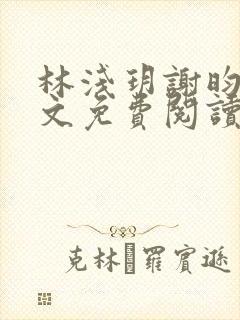 林淺玥謝昀
文免費閱讀
克林 羅賓遜